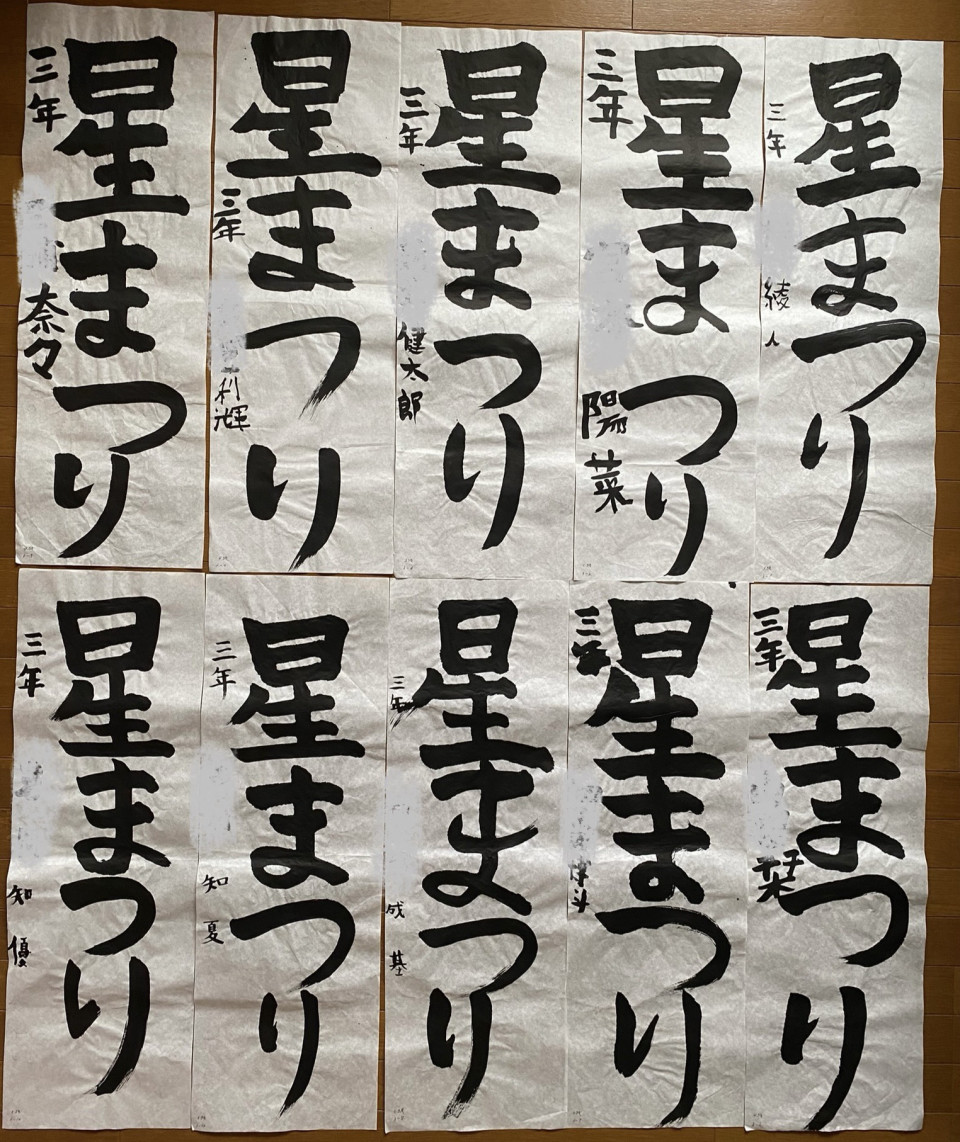 星まつり
三年
奈々
星まつり
三年
利輝
星まつり
三年
健太郎
星まつり
三年
陽菜
星まつり
三年
綾人
星まつり
三年
知優
星まつり
三年
知夏
星まつり
三年
成基
星まつり
三年
星まつり
三年
栞